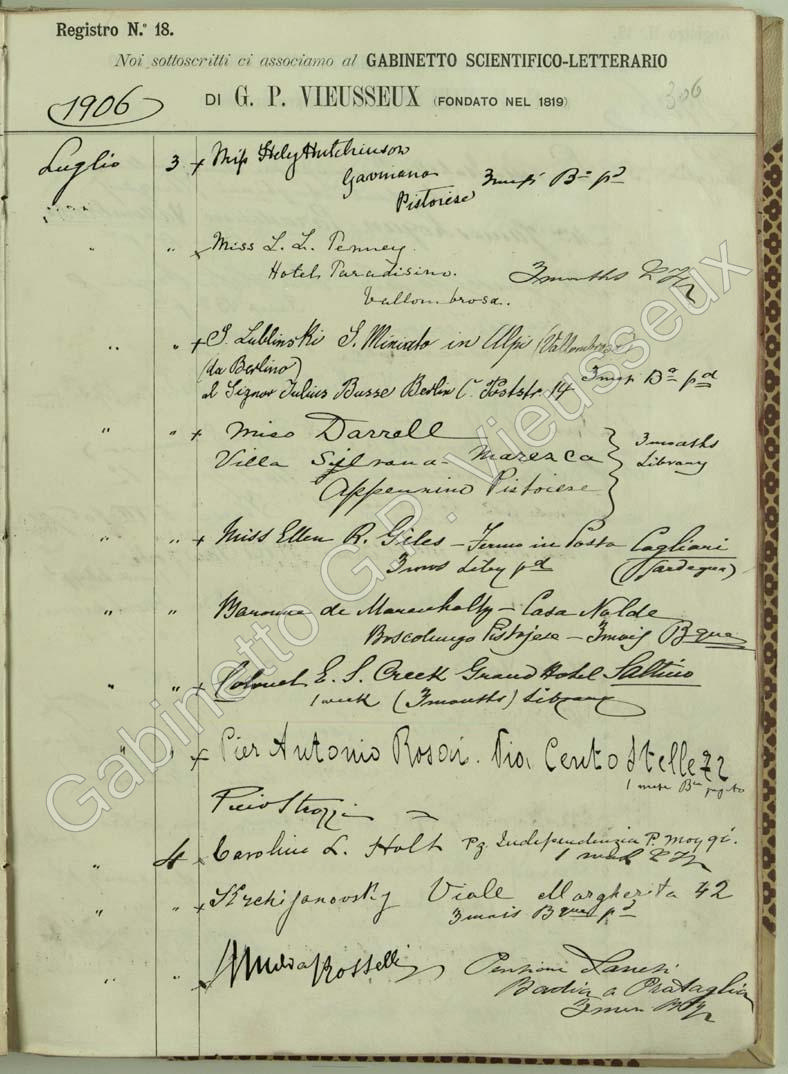 Registro N.º 18.
Noi sottoscritti ci associamo al GABINETTO SCIENTIFICO-LETTERARIO
1906
DI G. P. VIEUSSEUX (FONDATO NEL 1819)
306
Luglio 3 x Miss Hely Hutchinson
Gavinana 3 mesi Bª pd
Pistoiese
" " Miss L. L. Penney
Hotel Paradisino. 3 months
Vallombrosa.
" " x S. Lublinski S. Miniato in Alpi (Vallombrosa)
(da Berlino)
al Signor Julius Busse Berlin C. Poststr. 14 3 mesi Bª pd
" " x Miss Darrell
Villa Sylvana - Maresca 3 months
Appennino Pistoiese Library
" " x Miss Ellen R. Giles - Fermo in Posta Cagliari
3 mos Liby pd (Sardegna)
" " Baronne de Marenholtz - Casa Nolde
Boscolungo Pistojese - 3 mois Bque
" " x Colonel E. S. Creek Grand Hotel Saltino
1 week (3 months) Library
" " x Pier Antonio Rosai. Via Cento Stelle 22
1 mese Bca pagato
Piero Strozzi
" 4 x Caroline L. Holt Pz. Independenzia P.
1
" " x Krchijanovsky Viale Margherita 42
3 mois Bque pd
" " x Amelia Rosselli Pensione Lanesi
Badia a Prataglia
3 mesi
Gabinetto G.P. Vieusseux